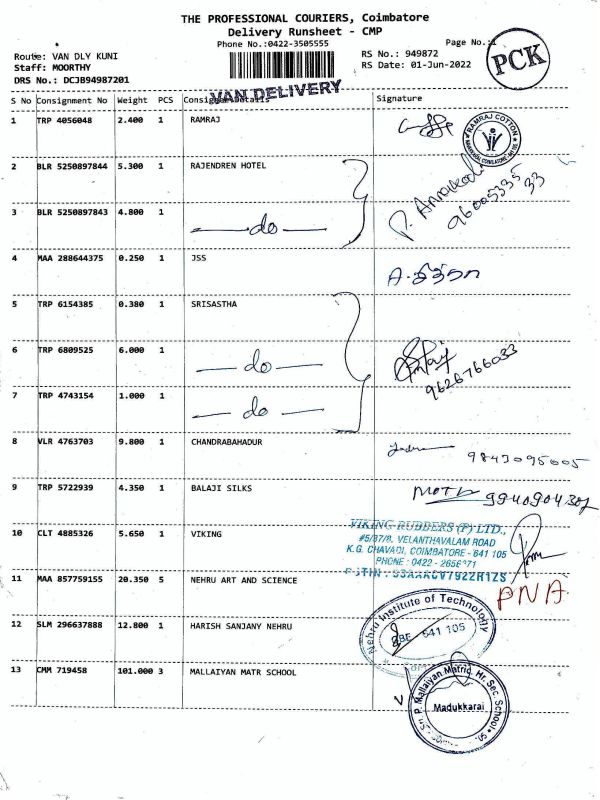 THE PROFESSIONAL COURIERS, Coimbatore
Delivery Runsheet - CMP
Phone No.:0422-3505555
Page No.:1
PCK
Route: VAN DLY KUNI
RS No.: 949872
Staff: MOORTHY
RS Date: 01-Jun-2022
DRS No.: DCJB94987201
VAN DELIVERY
S No Consignment No Weight PCS Consignee Details Signature
1 TRP 4056048 2.400 1 RAMRAJ
RAMRAJ COTTON
2 BLR 5250897844 5.300 1 RAJENDREN HOTEL
P.
9600533533
3 BLR 5250897843 4.800 1 do
4 MAA 288644375 0.250 1 JSS
5 TRP 6154385 0.380 1 SRISASTHA
6 TRP 6809525 6.000 1 do
9626766033
7 TRP 4743154 1.000 1 do
8 VLR 4763703 9.800 1 CHANDRABAHADUR
9843095005
9 TRP 5722939 4.350 1 BALAJI SILKS
VIKING RUBBERS (P) LTD.,
#5/37/8. VELANTHAVALAM ROAD
10 CLT 4885326 5.650 1 VIKING
K.G. CHAVADI, COIMBATORE - 641 105
PHONE : 0422 - 2656371
11 MAA 857759155 20.350 5 NEHRU ART AND SCIENCE
PNA
Nehru Institute of Technology
CBE 641 105
12 SLM 296637888 12.800 1 HARISH SANJANY NEHRU
13 CMM 719458 101.000 3 MALLAIYAN MATR SCHOOL
Sri. P. Mallaiyan Matric. Hr. Sec. School
Madukkarai